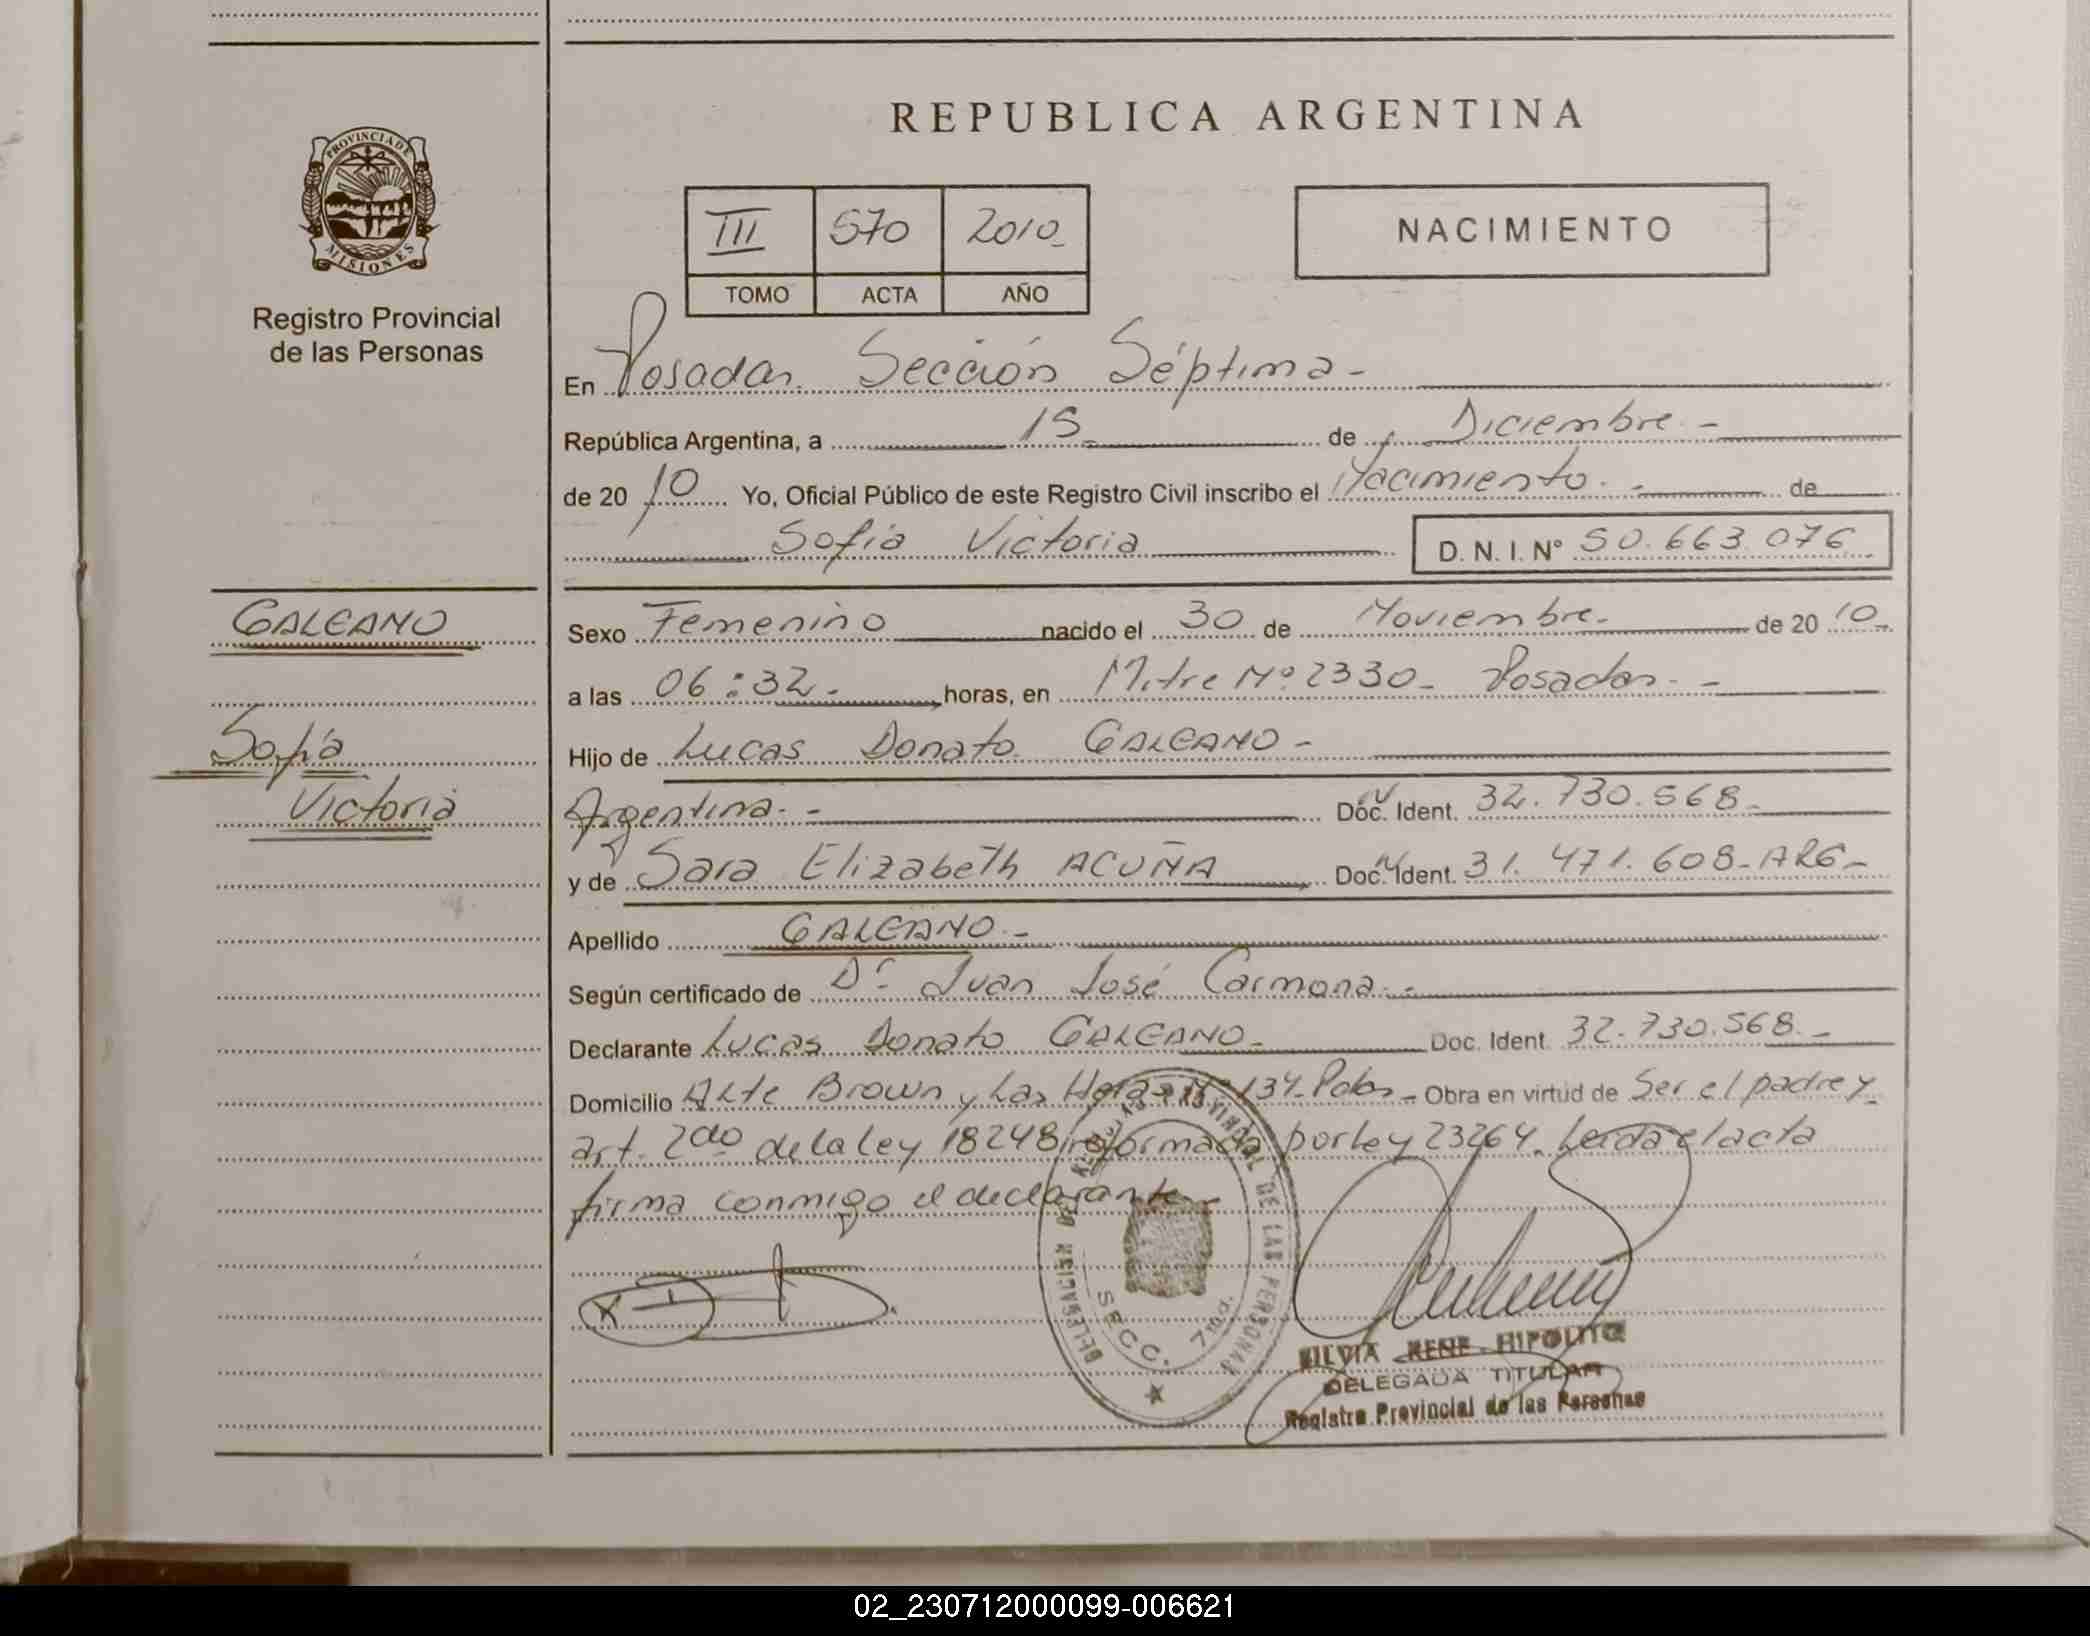 REPUBLICA ARGENTINA
PROVINCIA DE
MISIONES
Registro Provincial
de las Personas
III 570 2010
TOMO ACTA AÑO
NACIMIENTO
En Posadas Sección Séptima
República Argentina, a 15 de Diciembre
de 2010 Yo, Oficial Público de este Registro Civil inscribo el Nacimiento de
Sofía Victoria D. N. I. N° 50.663.076
GALEANO
Sofía
Victoria
Sexo Femenino nacido el 30 de Noviembre de 2010
a las 06:32 horas, en Mitre Nº 2330 Posadas
Hijo de Lucas Donato GALEANO
Argentina Doc. Ident. 32.730.568
y de Sara Elizabeth ACUÑA Doc. Ident. 31.471.608 ARG
Apellido GALEANO
Según certificado de Dr. Juan José Carmona
Declarante Lucas Donato GALEANO Doc. Ident. 32.730.568
Domicilio Alte Brown y Las Heras Nº 134 Pdas Obra en virtud de Ser el padre y
art. 2do de la ley 18248 reformada por ley 23264. Leída el acta
firma conmigo el declarante
DE LAS PERSONAS
SECC. 7ma.
SILVIA RENE HIPOLITO
DELEGADA TITULAR
Registro Provincial de las Personas
02_230712000099-006621